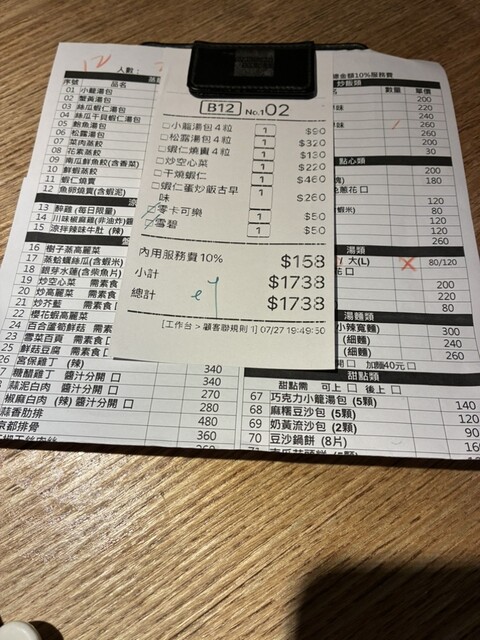 人數：
金額10%服務費
B12 No.102
小籠湯包4粒 1 $90
松露湯包4粒 1 $320
蝦仁燒賣4粒 1 $130
炒空心菜 1 $220
干燒蝦仁 1 $460
蝦仁蛋炒飯古早味 1 $260
零卡可樂 1 $50
雪碧 1 $50
內用服務費10% $158
小計 $1738
總計 $1738
[工作台 > 顧客聯規則 1] 07/27 19:49:50
序號 品名
01 小籠湯包
02 蟹黃湯包
03 絲瓜蝦仁湯包
04 絲瓜干貝蝦仁湯包
05 鮑魚湯包
06 松露湯包
07 菜肉蒸餃
08 花素蒸餃
09 南瓜鮮魚餃(含香菜)
10 鮮蝦蒸餃
11 蝦仁燒賣
12 魚卵燒賣(含蝦泥)
13 醉雞 (每日限量)
14 川味椒麻雞(非油炸)
15 涼拌辣味牛肚 (辣)
16 樹子蒸高麗菜
17 蒸蛤蠣絲瓜(含蝦米)
18 銀芽水蓮(含柴魚片)
19 炒空心菜 需素食
20 炒高麗菜 需素食
21 炒芥藍 需素食
22 櫻花蝦高麗菜
24 百合蘆筍鮮菇 需素食
23 雪菜百頁 需素食
25 鮮菇豆腐 需素食
26 宮保雞丁 (辣) 340
糖醋雞丁 醬汁分開 340
蒜泥白肉 醬汁分開 270
椒麻白肉 (辣) 醬汁分開 280
蒜香肋排 480
京都排骨 360
炒飯類
數量 單價
200
220
240
200
200
30
點心類
180
80
120
120
260
湯類
大(L) 80/120
200
220
80
湯麵類
小辣寬麵 300
(細麵) 240
(細麵) 260
加麵40元
甜點類
甜點需 可上 後上
67 巧克力小籠湯包 (5顆) 140
68 麻糬豆沙包 (5顆) 120
69 奶黃流沙包 (2顆) 90
70 豆沙鍋餅 (8片) 160